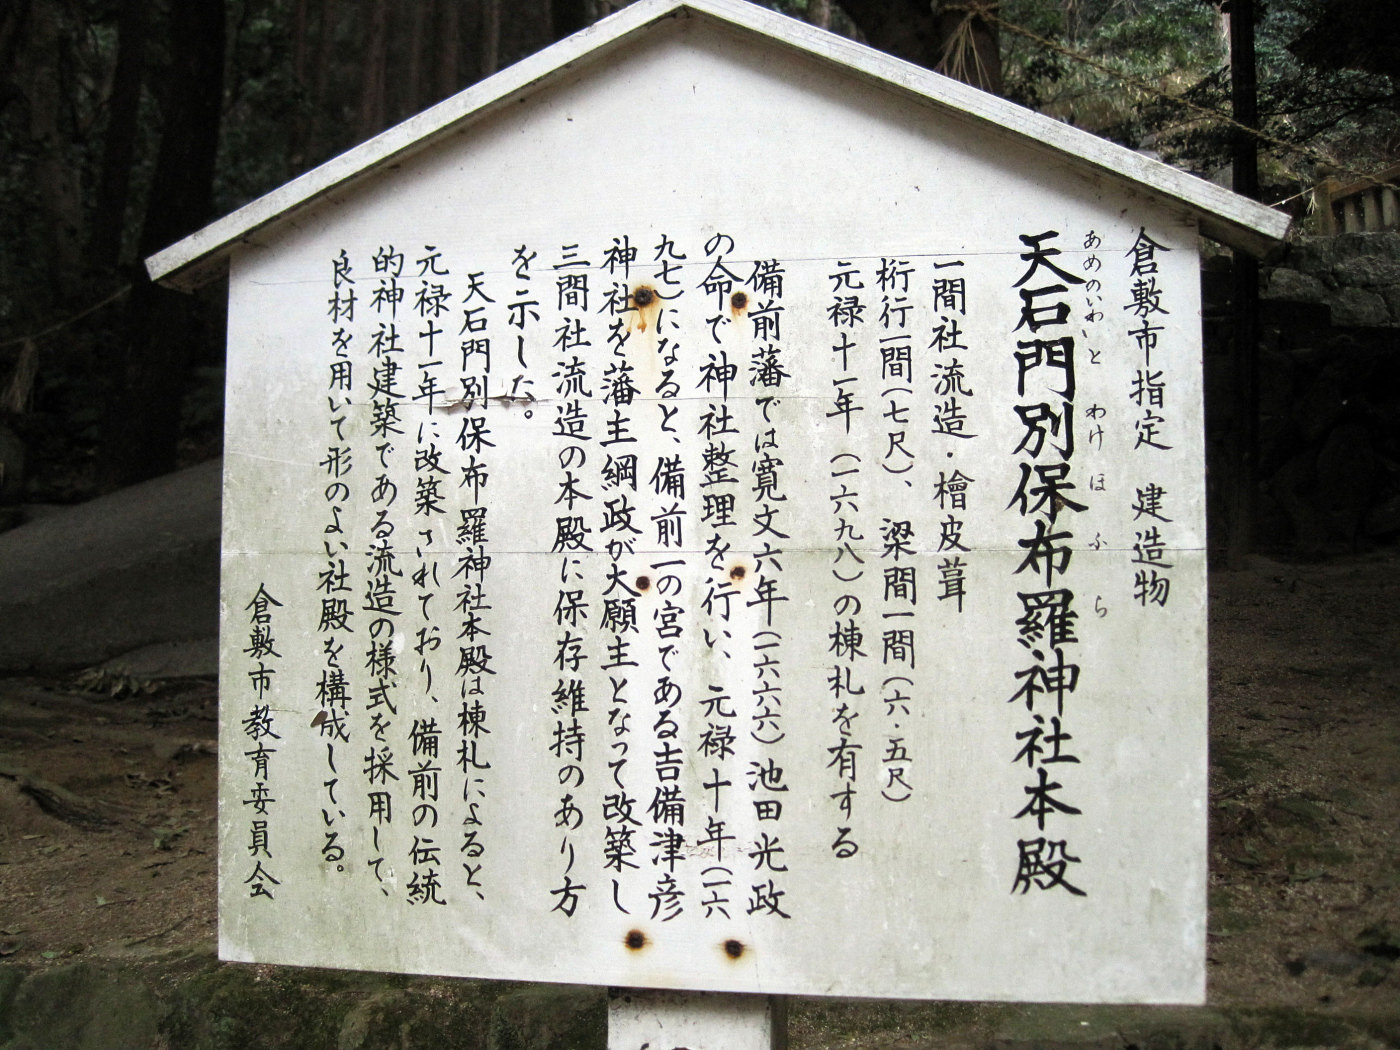 倉敷市指定　建造物
あめのいわいと　わけ　ほ　ふ　ら
天石門別保布羅神社本殿
一間社流造・檜皮葺
桁行一間（七尺）、梁間一間（六・五尺）
元禄十一年（一六九八）の棟札を有する
備前藩では寛文六年（一六六六）池田光政
の命で神社整理を行い、元禄十年（一六
九七）になると、備前一の宮である吉備津彦
神社を藩主綱政が大願主となって改築し
三間社流造の本殿に保存維持のあり方
を示した。
天石門別保布羅神社本殿は棟札によると、
元禄十一年に改築されており、備前の伝統
的神社建築である流造の様式を採用して、
良材を用いて形のよい社殿を構成している。
倉敷市教育委員会